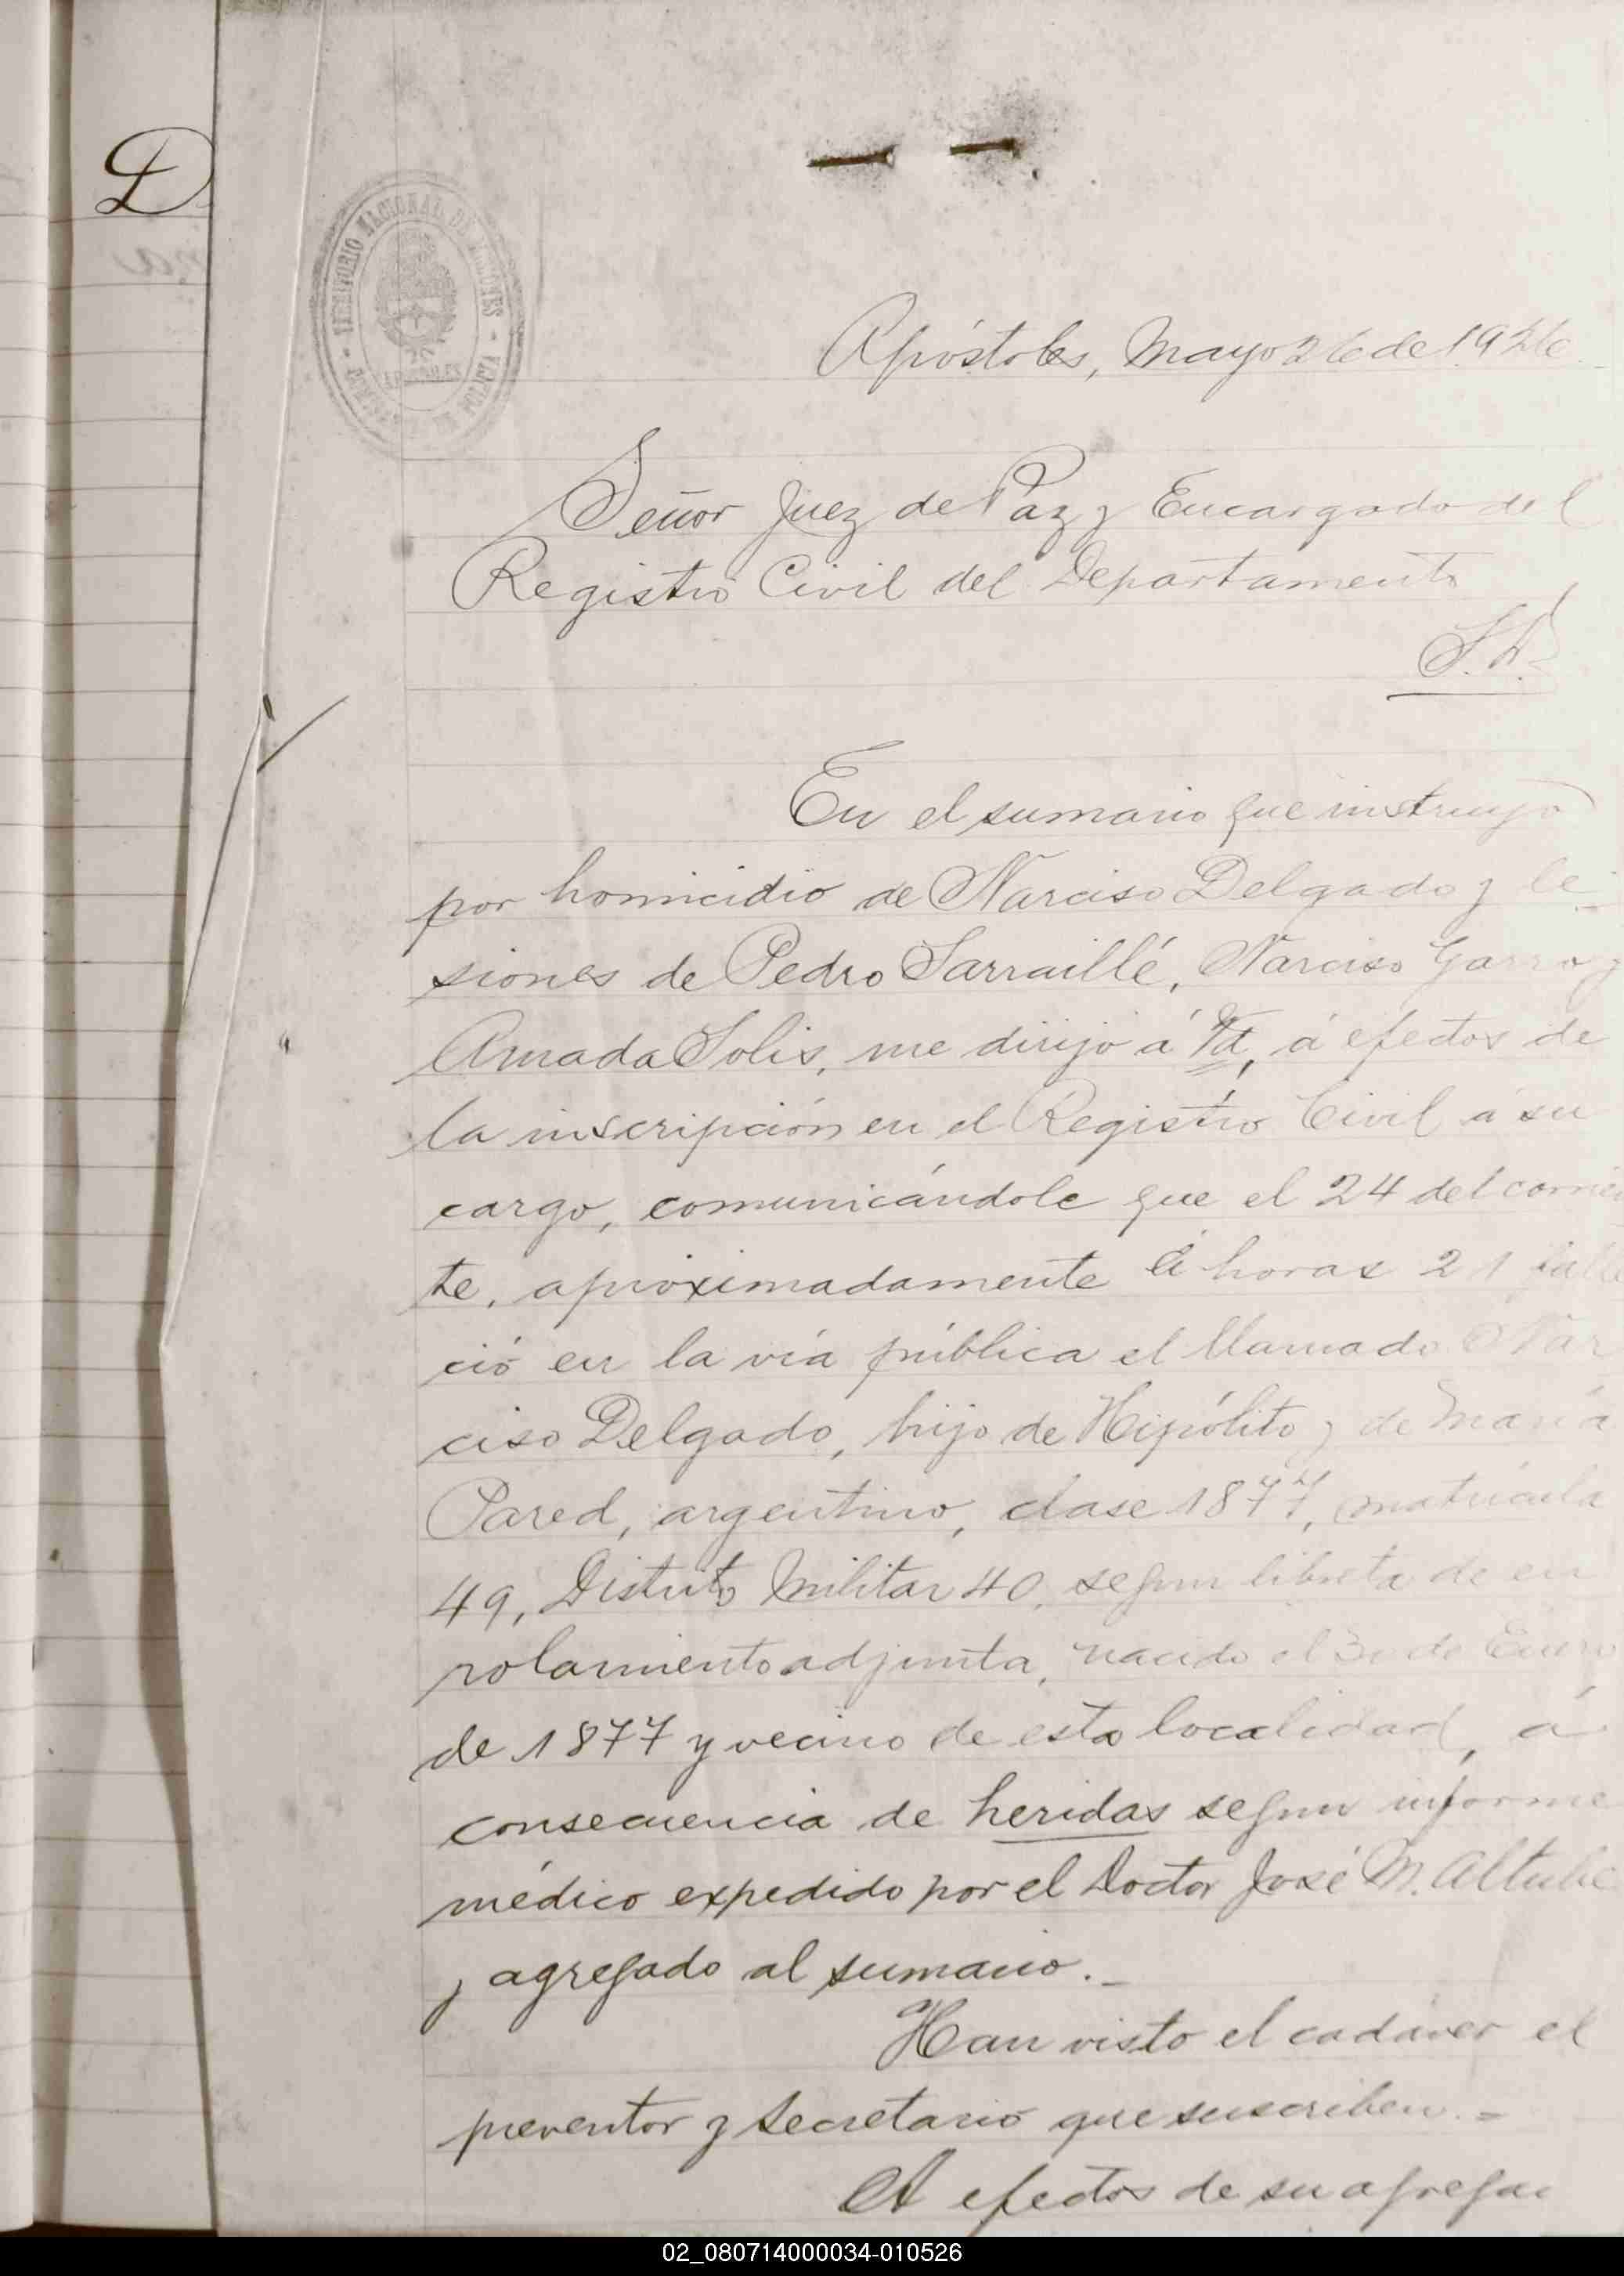 D
TERRITORIO NACIONAL DE MISIONES
POLICIA
Apóstoles, Mayo 26 de 1926
Señor Juez de Paz y Encargado del
Registro Civil del Departamento
S.D.
En el sumario que instruyo
por homicidio de Narciso Delgado y le-
siones de Pedro Sarraillé, Narciso Garro y
Amada Solis, me dirijo á Vd, á efectos de
la inscripción en el Registro Civil á su
cargo, comunicándole que el 24 del corrien
te, aproximadamente á horas 21 falle
ció en la vía pública el llamado Nar
ciso Delgado, hijo de Hipólito y de María
Pared, argentino, clase 1877, matrícula
49, Distrito Militar 40, segun libreta de en
rolamiento adjunta, nacido el 30 de Enero
de 1877 y vecino de esta localidad, á
consecuencia de heridas segun informe
médico expedido por el Doctor José M. Altube
y agregado al sumario.-
Han visto el cadáver el
preventor y Secretario que suscriben.=
A efectos de su agregac
02_080714000034-010526